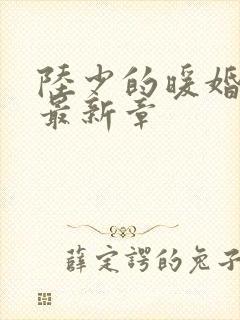 陸少的暖婚
最新章
薛定諤的兔子